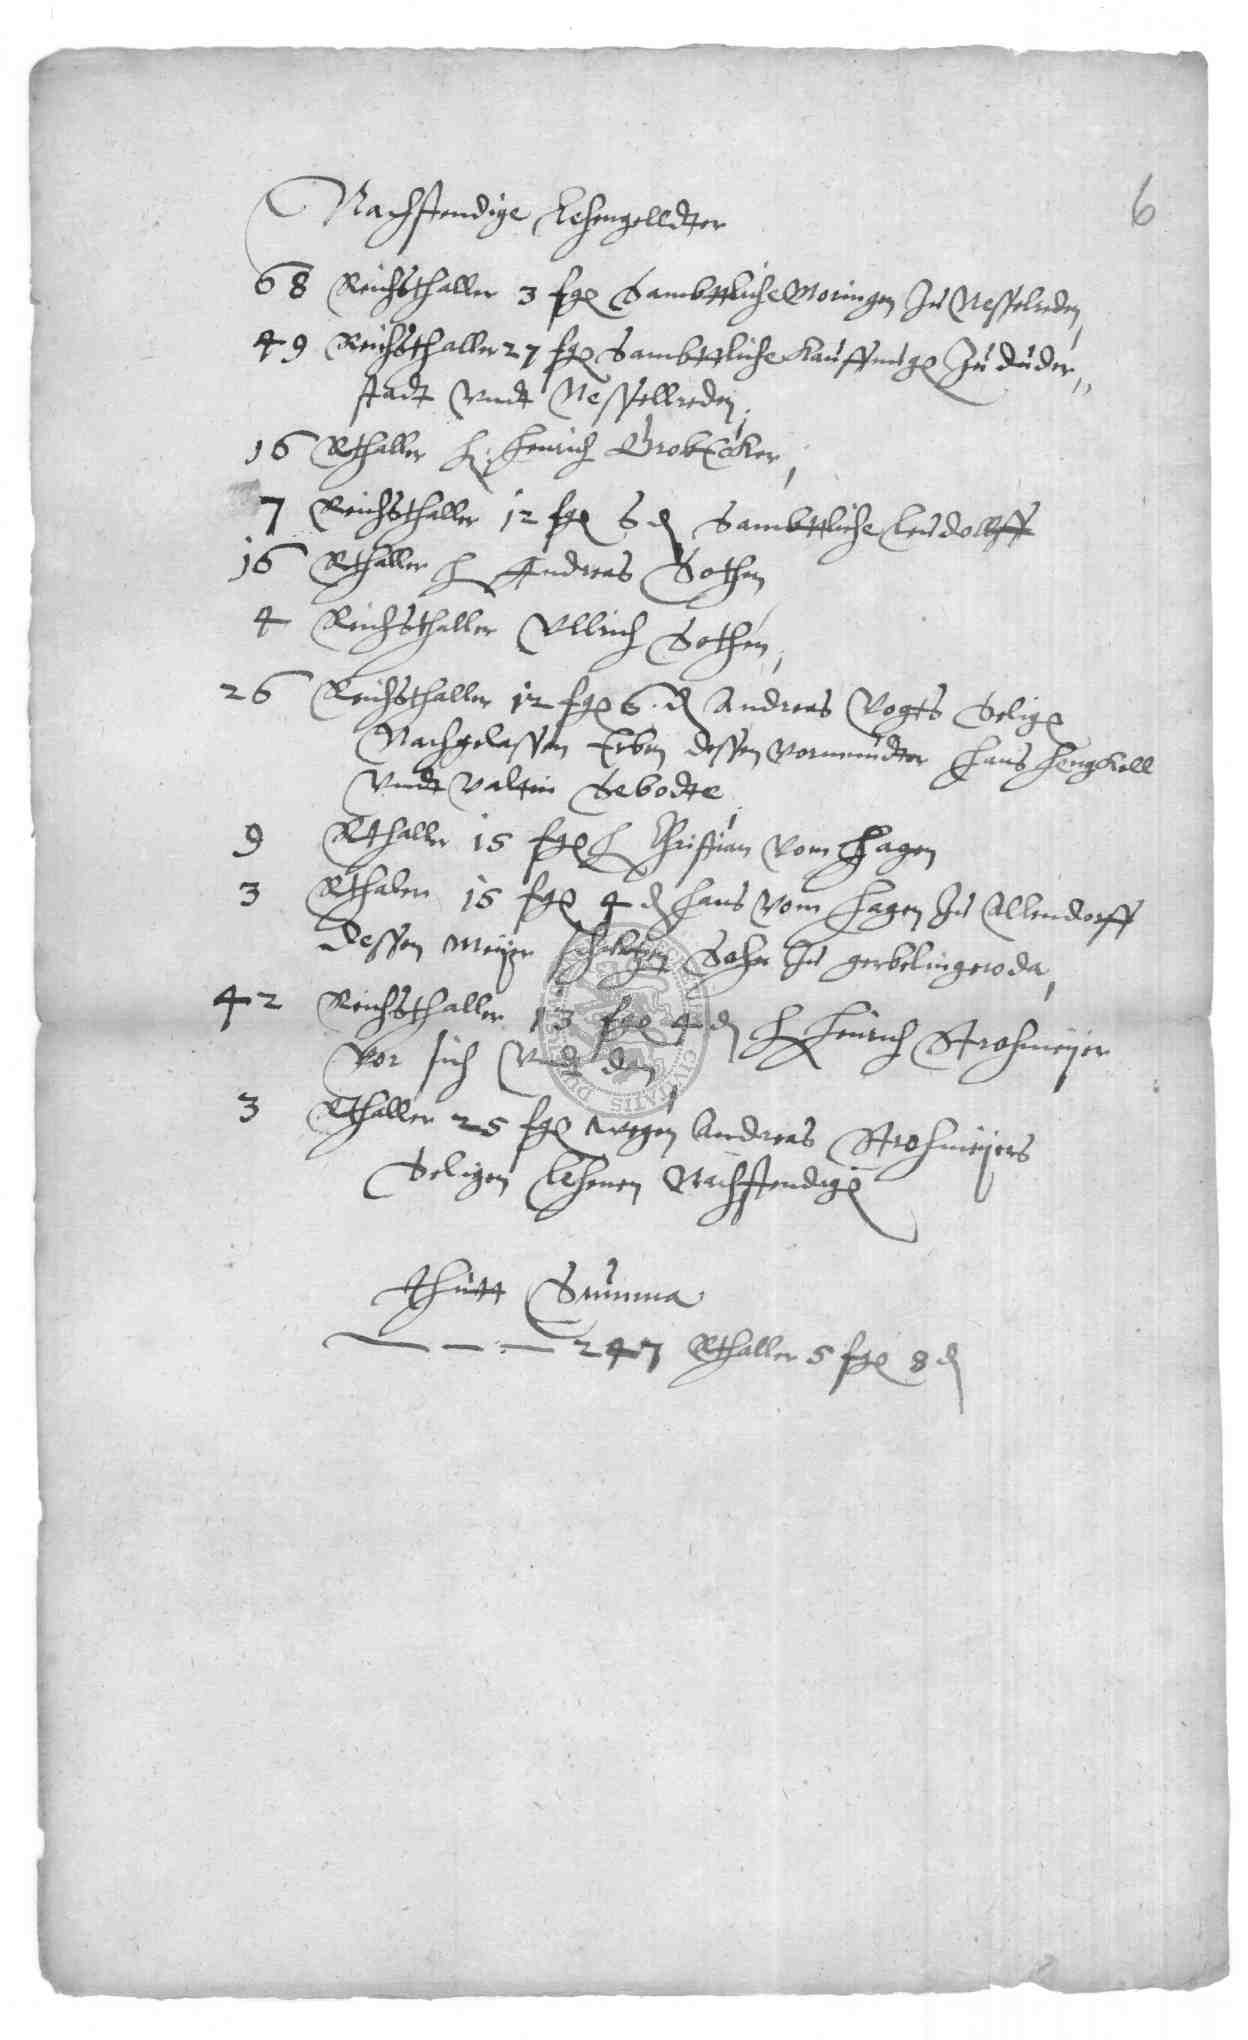 6
Nachstendige Lehengelldter
68 Reichsthaller 3 fg Sambttliche Moringen Zu Nesselreden,
49 Reichsthaller 27 fg Sambttliche Kauffung Zu duder„
stadt Vndt Nessellreden,
16 Rthaller H. Henrich Grobecker,
7 Reichsthaller 12 fg 5 d Sambttliche Leudolff
16 Rthaller H Andreas Sothen
4 Reichsthaller Vllrich Sothen,
26 Reichsthaller 12 fg 6 d Andreas Vogts Selig
Nachgelassen Erben dessen Vormundter Hans Hengkell
Vndt Valtin Sebodte
9 Rthaller 15 fg H Christian Vom Hagen
3 Rthaler 15 fg 4 d Hans Vom Hagen Zu Allendorff
dessen Meyer Sohn Zu gerbelingeroda,
42 Reichsthaller 13 fg 4 d H Heinrich Strohmeyer
Vor sich Vndt dan
3 Rthaller 25 fg wegen Andreas Strohmeyers
Seligen Lehenen Nachstendig
Thutt Summa
— — — 247 Rthaller 5 fg 8 d
CIVITATIS